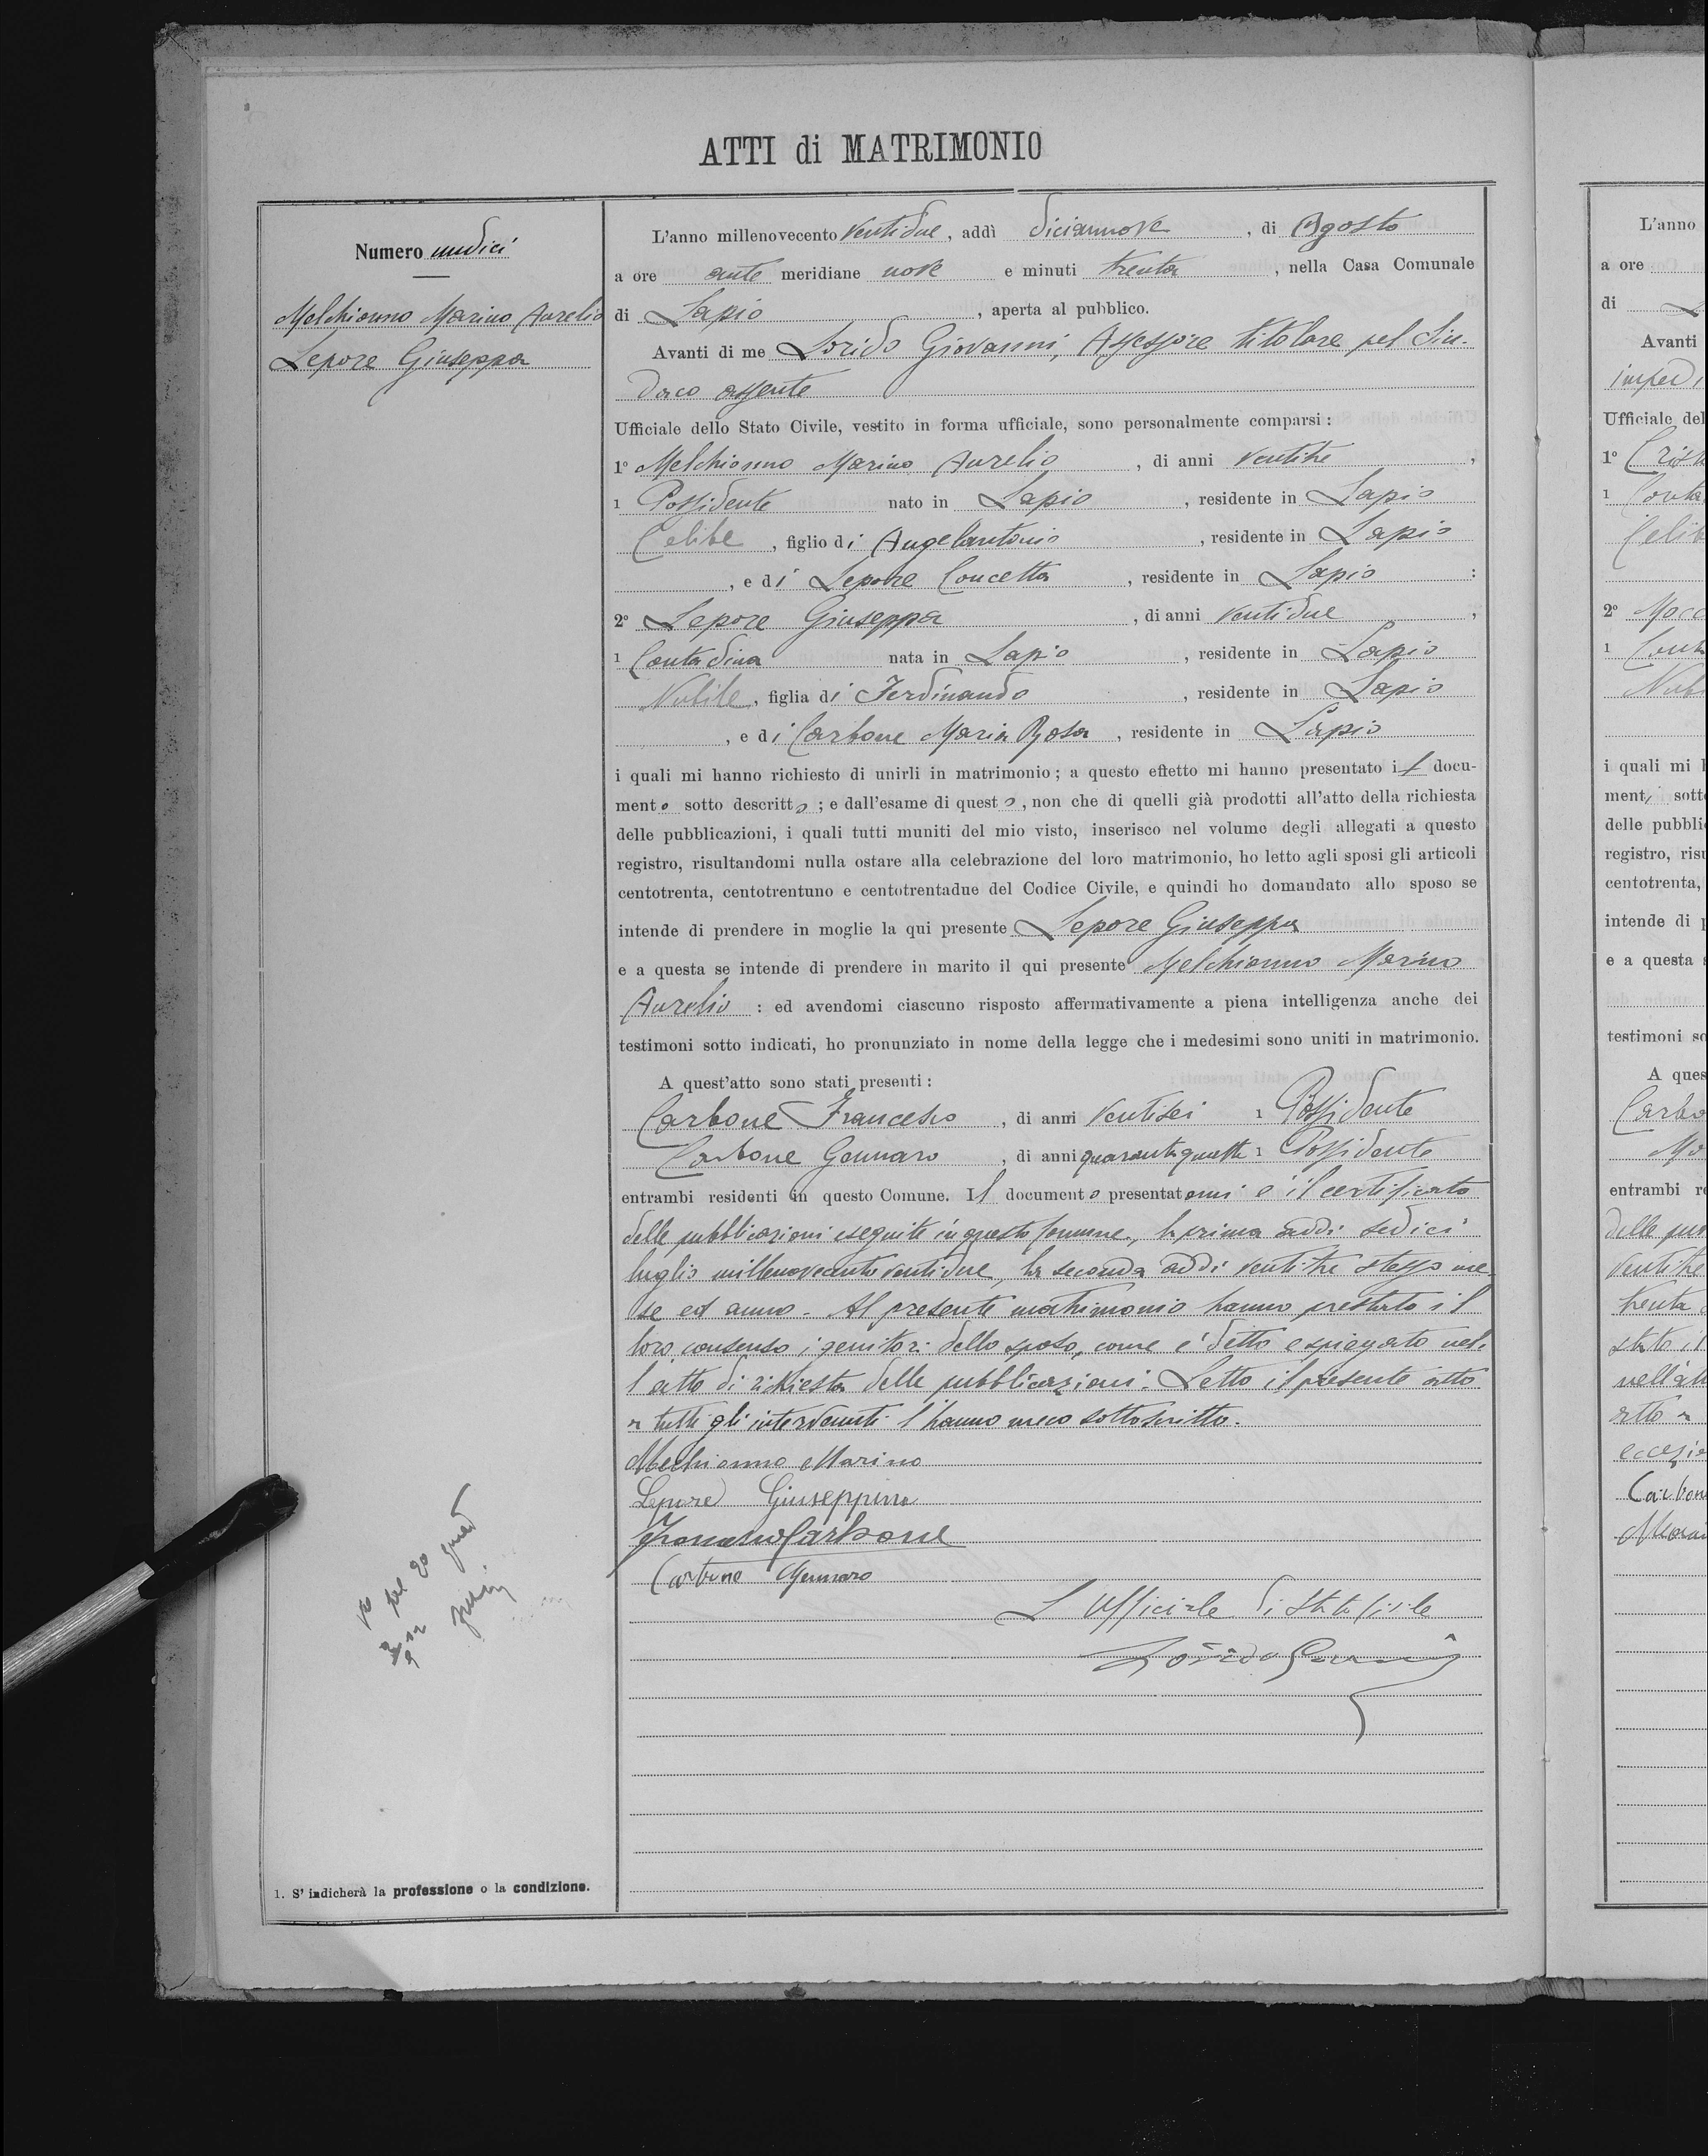 ATTI di MATRIMONIO
Numero undici
Melchionno Marino Aurelio
Lepore Giuseppa
L'anno millenovecento ventidue, addì diciannove, di Agosto
a ore ante meridiane nove e minuti trenta, nella Casa Comunale
di Lapio, aperta al pubblico.
Avanti di me Lorido Giovanni, Assessore titolare pel Sin-
daco assente
Ufficiale dello Stato Civile, vestito in forma ufficiale, sono personalmente comparsi:
1° Melchionno Marino Aurelio, di anni ventitre,
1 Possidente nato in Lapio, residente in Lapio
Celibe, figlio di Angelantonio, residente in Lapio
, e di Lepore Concetta, residente in Lapio :
2° Lepore Giuseppa, di anni ventidue,
1 Contadina nata in Lapio, residente in Lapio
Nubile, figlia di Ferdinando, residente in Lapio
, e di Carbone Maria Rosa, residente in Lapio
i quali mi hanno richiesto di unirli in matrimonio; a questo effetto mi hanno presentato il docu-
mento sotto descritto; e dall'esame di questo, non che di quelli già prodotti all'atto della richiesta
delle pubblicazioni, i quali tutti muniti del mio visto, inserisco nel volume degli allegati a questo
registro, risultandomi nulla ostare alla celebrazione del loro matrimonio, ho letto agli sposi gli articoli
centotrenta, centotrentuno e centotrentadue del Codice Civile, e quindi ho domandato allo sposo se
intende di prendere in moglie la qui presente Lepore Giuseppa
e a questa se intende di prendere in marito il qui presente Melchionno Marino
Aurelio : ed avendomi ciascuno risposto affermativamente a piena intelligenza anche dei
testimoni sotto indicati, ho pronunziato in nome della legge che i medesimi sono uniti in matrimonio.
A quest'atto sono stati presenti:
Carbone Francesco, di anni ventisei 1 Possidente
Carbone Gennaro, di anni quarantaquattro 1 Possidente
entrambi residenti in questo Comune. Il documento presentatomi è il certificato
delle pubblicazioni eseguite in questo comune, la prima addì sedici
luglio millenovecento ventidue, la seconda addì ventitre stesso me-
se ed anno. Al presente matrimonio hanno prestato il
loro consenso i genitori dello sposo, come è detto e spiegato nel-
l'atto di richiesta delle pubblicazioni. Letto il presente atto
a tutti gli intervenuti l'hanno meco sottoscritto.
Melchionno Marino
Lepore Giuseppina
Francesco Carbone
Carbone Gennaro
L'Ufficiale di Stato Civile
Lorido Giovanni
1. S'indicherà la professione o la condizione.
L'anno
a ore
di
Avanti
imped
Ufficiale del
1°
1 Conta
Celib
2°
1 Cont
Nubi
i quali mi
ment, sott
delle pubbli
registro, ris
centotrenta,
intende di
e a questa
testimoni so
A ques
Carbo
entrambi re
delle pu
ventitre
trenta
stato il
nell'att
atto a
Carbon